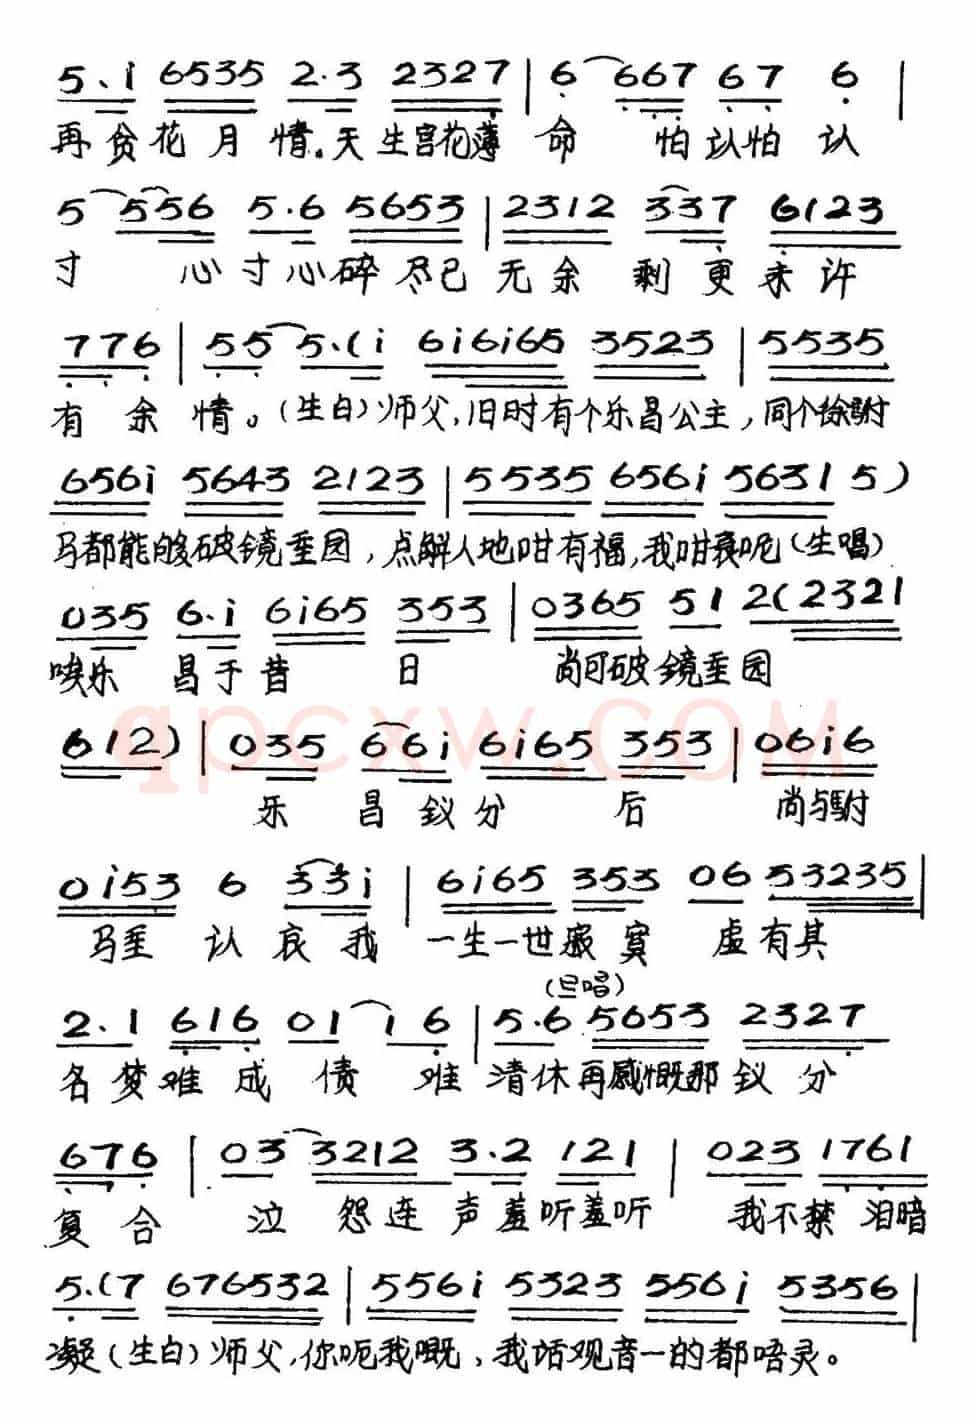 5.i 6535 2.3 2327 | 6 667 67 6 |
再贪花月情。天生宫花薄命 怕认怕认
5 556 5.6 5653 | 2312 337 6123
寸心寸心碎尽已无余剩更未许
776 | 55 5.(i 6i6i65 3523 | 5535
有余情。(生白)师父,旧时有个乐昌公主,同个徐驸
656i 5643 2123 | 5535 656i 5631 5)
马都能够破镜重园,点解人地咁有福,我咁衰呢(生唱)
035 6.i 6i65 353 | 0365 51 2(2321
唉乐昌于昔日 尚可破镜重园
612) | 035 66i 6i65 353 | 06i6
乐昌钗分后 尚与驸
0i53 6 33i | 6i65 353 06 53235 |
马重认哀我一生一世寂寞 虚有其
(旦唱)
2.1 616 01 1 6 | 5.6 5653 2327
名梦难成债难清休再感慨那钗分
676 | 03 3212 3.2 121 | 023 1761
复合 泣怨连声羞听羞听 我不禁泪暗
5.(7 676532 | 556i 5323 556i 5356 |
凝(生白)师父,你呃我嘅,我话观音一的都唔灵。
qpcxw.com